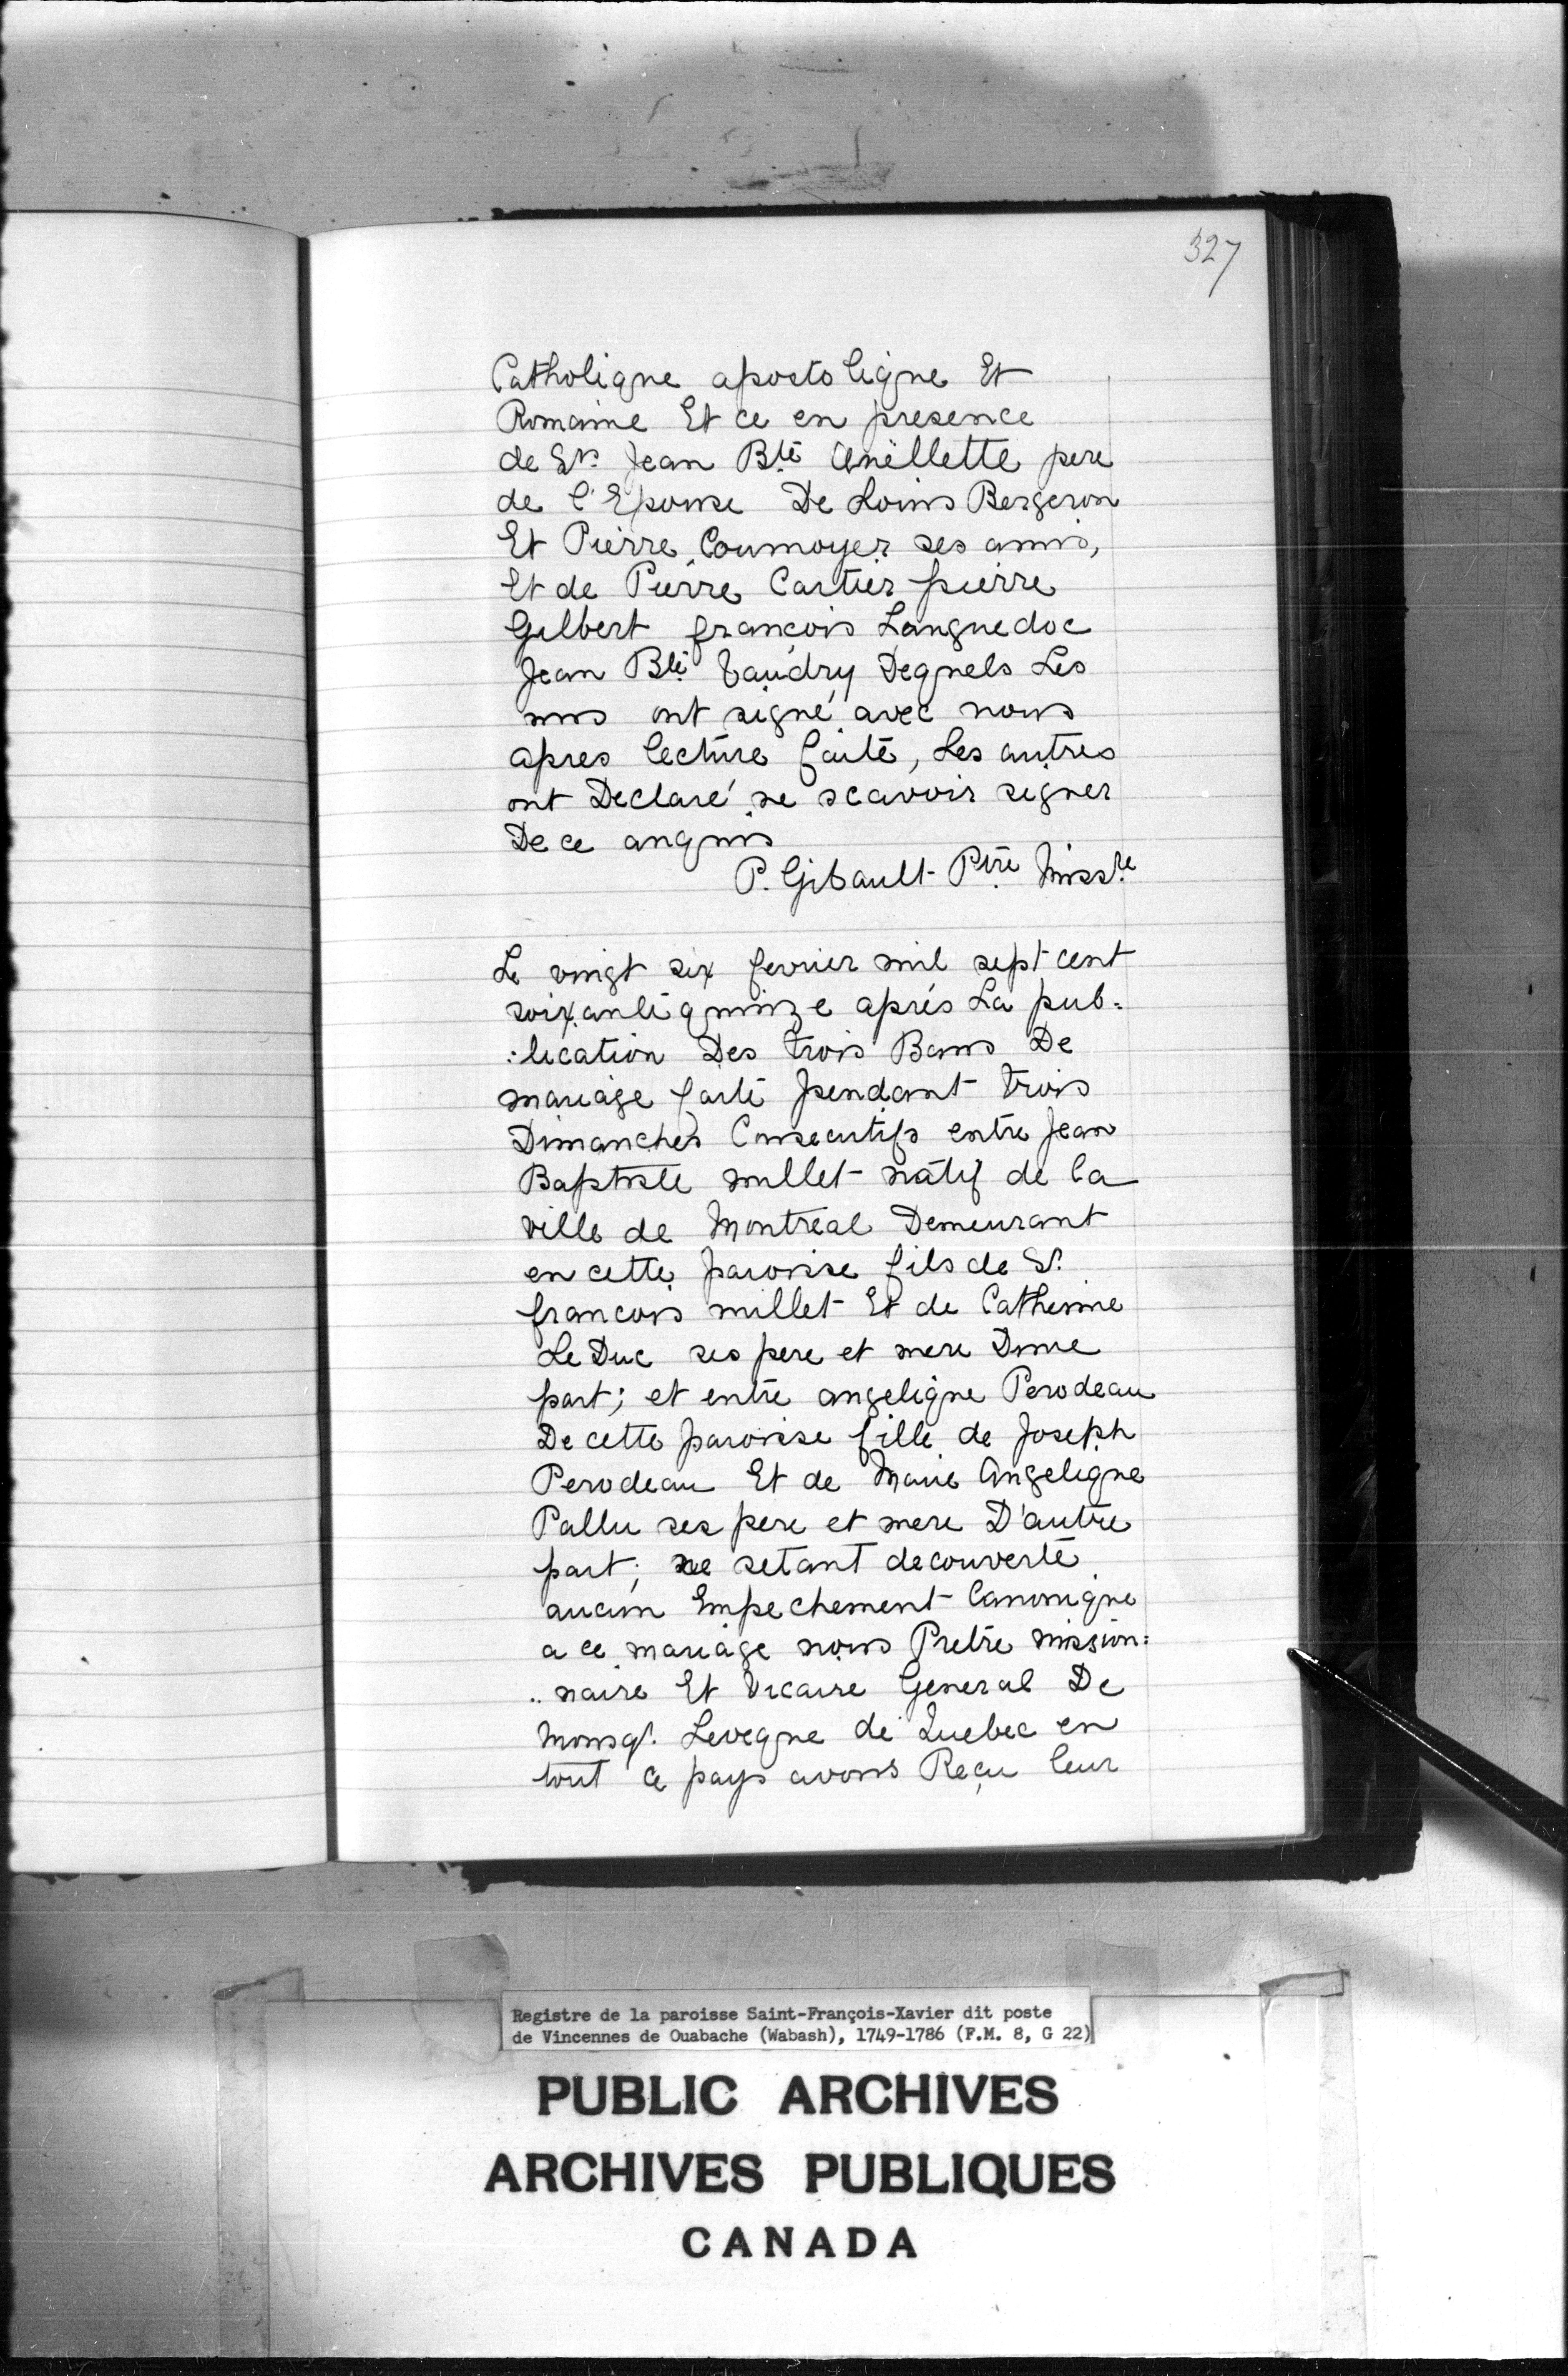 327
Catholique apostolique Et
Romaine Et ce en presence
de Sr. Jean Bte Ouellette pere
de l'Epouse De Louis Bergeron
Et Pierre Cournoyer ses amis,
Et de Pierre Cartier pierre
Gilbert francois Languedoc
Jean Bte Vaudry Dequels Les
uns ont signé avec nous
apres lecture faite, Les autres
ont Declaré ne scavoir signer
De ce anquis
P. Gibault Ptre Missre
Le vingt six fevrier mil sept cent
soixante quinze aprés La pub=
=lication Des trois Bans De
mariage faite pendant trois
Dimanches Consecutifs entre Jean
Baptiste millet natif de la
ville de Montreal Demeurant
en cette paroisse fils de Sr.
francois millet Et de Catherine
Le Duc ses pere et mere Dune
part; et entre angelique Perodeau
De cette paroisse fille de Joseph
Perodeau Et de Marie Angelique
Pallu ses pere et mere D'autre
part; ne setant decouverte
aucun Empechement Canonique
a ce mariage nous Pretre mission=
..naire Et Vicaire General De
Monsgr. Leveque de Quebec en
tout ce pays avons Reçu leur
Registre de la paroisse Saint-François-Xavier dit poste
de Vincennes de Ouabache (Wabash), 1749-1786 (F.M. 8, G 22)
PUBLIC ARCHIVES
ARCHIVES PUBLIQUES
CANADA